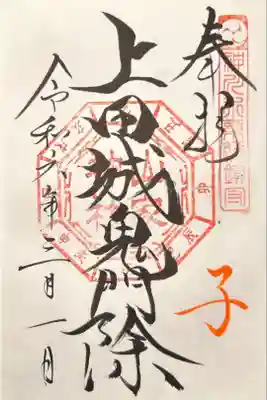 奉拝
上田城鬼門除
子
令和六年三月一日